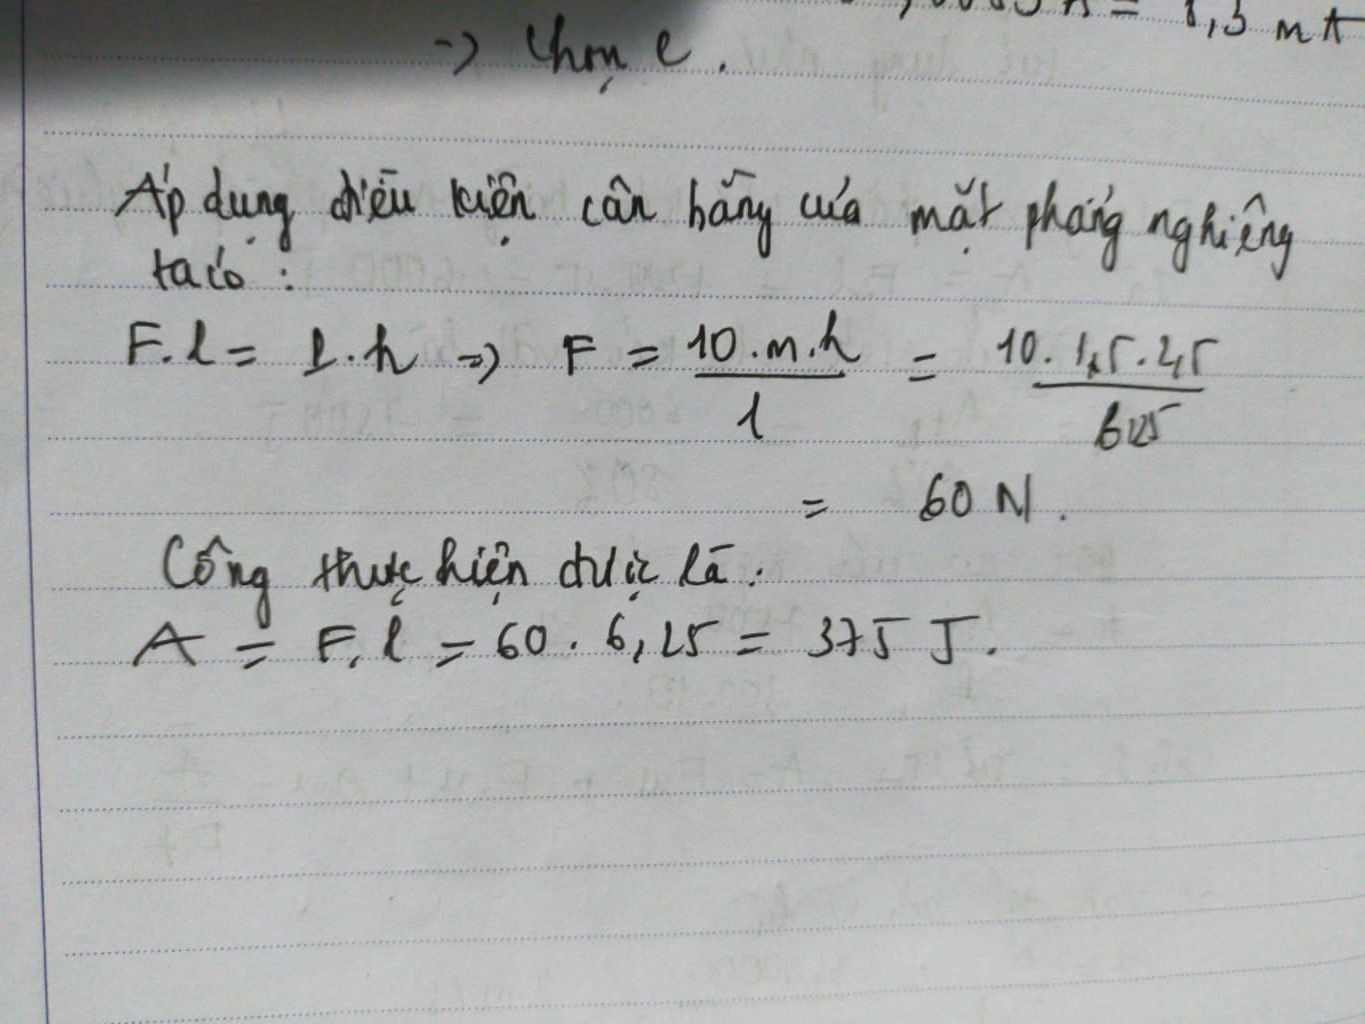 A = 1,3 mA
=> Chọn C.
Áp dụng điều kiện cân bằng của mặt phẳng nghiêng
ta có :
F.l = P.h => F = 10.m.h / l = 10.15.2,5 / 6,25
= 60 N.
Công thực hiện được là:
A = F.l = 60 . 6,25 = 375 J.